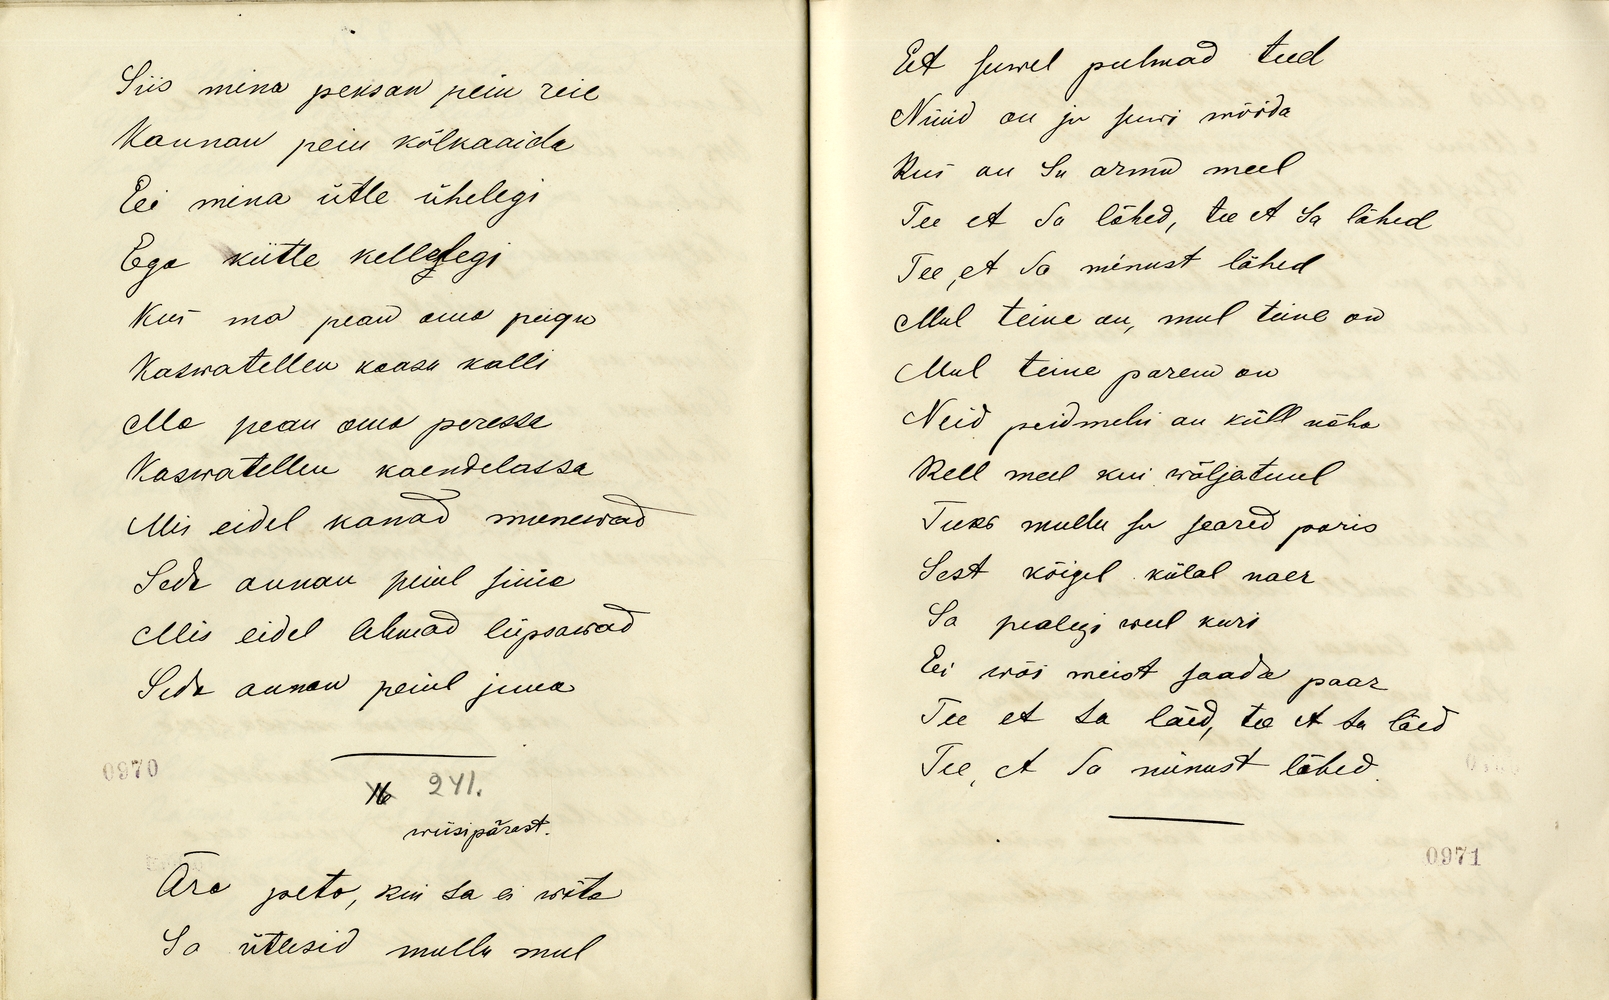 Siis mina peksan peiu reie
Kannan peiu kõlkaaida
Ei mina ütle ühelegi
Ega kütle kellelegi
Kui ma pean oma peigu
Kaswatellen kaasu kalli
Ma pean oma peressa
Kaswatellen kaendelassa
Mis eidel kanad munewad
Seda annan peiul süüa
Mis eidel lehmad lüpsawad
Seda annan peiul juua
0970
16 241.
wiisipärast.
Ära peta, kui sa ei wõta
Sa ütlesid mullu mul
Et suwel pulmad teed
Nüüd on ju suwi mööda
Kus on Su armu meel
Tee et Sa lähed, tee et Sa lähed
Tee, et Sa minust lähed
Mul teine on, mul teine on
Mul teine parem on
Neid peidmehi on küll näha
Kell meel kui wäljatuul
Tuks mullu su seared paris
Sest kõigel külal naer
Sa pealegi weel kuri
Ei wõi meist saada paar
Tee et sa läed, tee et sa läed
Tee, et Sa minust lähed.
0971